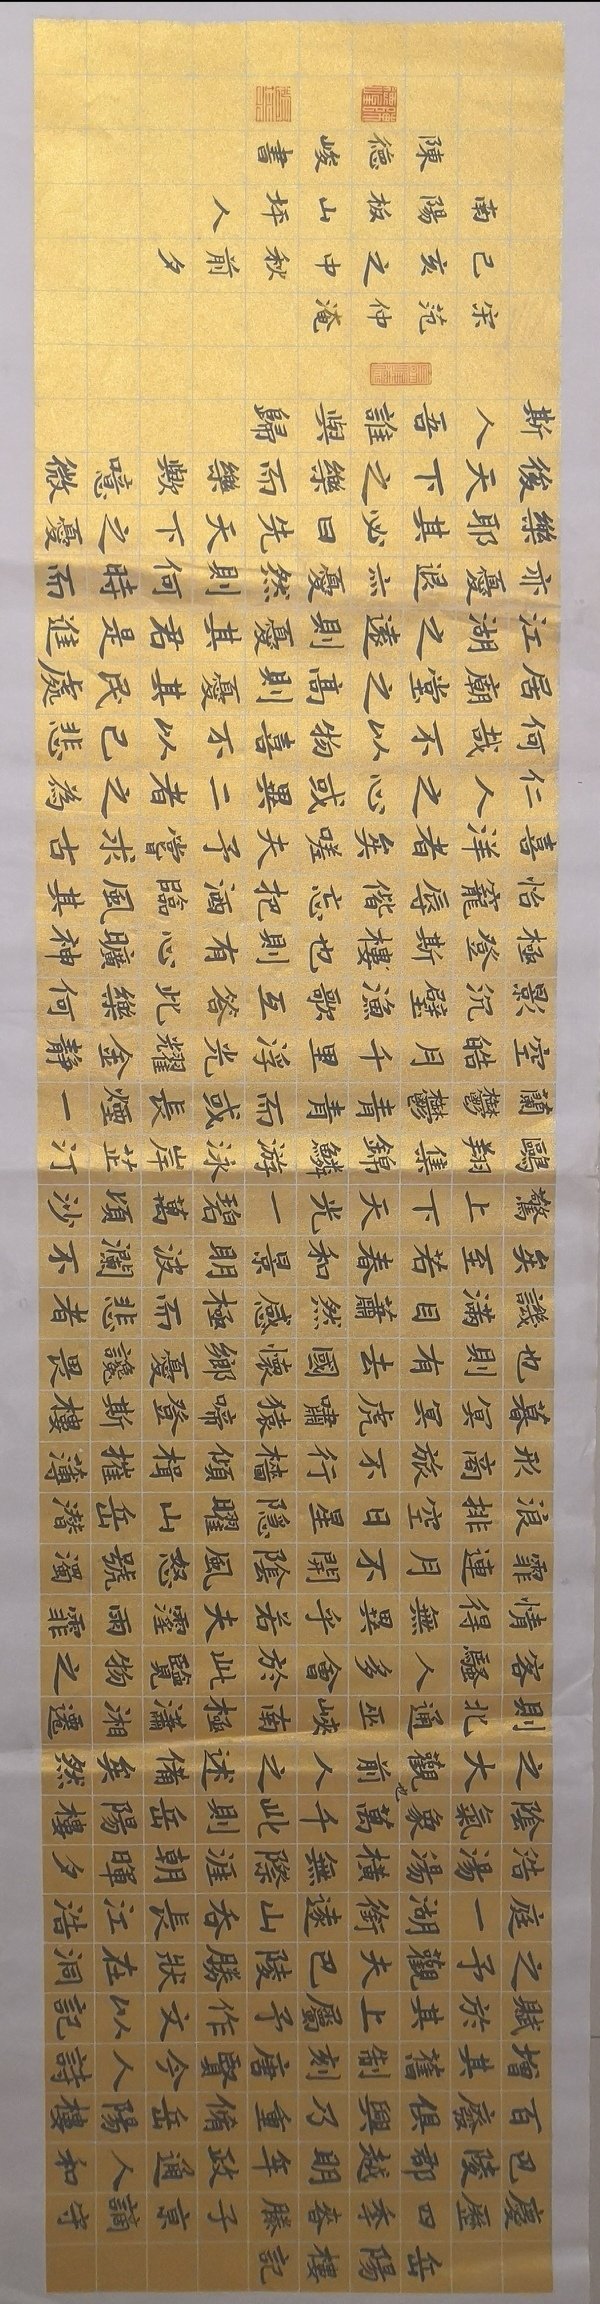 岳陽樓記
慶歷四秊春滕子京謫守
巴陵郡越明年政通人和
百廢俱興乃重修岳陽樓
增其舊制刻唐賢今人詩
賦於其上屬予作文以記
之予觀夫巴陵勝狀在洞
庭一湖銜遠山吞長江浩
浩湯湯橫無際涯朝暉夕
陰氣象萬千此則岳陽樓
之大觀也前人之述備矣然
則北通巫峽南極瀟湘遷
客騷人多會於此覽物之
情得無異乎若夫霪雨霏
霏連月不開陰風怒號濁
浪排空日星隱曜山岳潛
形商旅不行檣傾楫摧薄
暮冥冥虎嘯猿啼登斯樓
也則有去國懷鄉憂讒畏
譏滿目蕭然感極而悲者
矣至若春和景明波瀾不
驚上下天光一碧萬頃沙
鷗翔集錦鱗游泳岸芷汀
蘭鬱鬱青青而或長煙一
空皓月千里浮光耀金靜
影沉璧漁歌互答此樂何
極登斯樓也則有心曠神
怡寵辱偕忘把酒臨風其
喜洋者矣嗟夫予嘗求古
仁人之心或異二者之為
何哉不以物喜不以己悲
居廟堂之高則憂其民處
江湖之遠則憂其君是進
亦憂退亦憂然則何時而
樂耶其必曰先天下之憂
後天下之樂而樂歟噫微
斯人吾誰與歸
宋范仲淹
己亥之中秋前夕
南陽板山坪人
陳德峻書